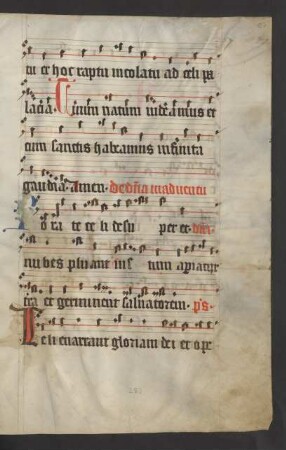 tu et hoc raptu incolatu ad celi pa
lacia. Cuium natum videamus et
cum sanctis habeamus infinita
gaudia. Amen. De dnica in aduentu
ora te ce li desu per et
nu bes pluant ius tum apiatur
tra et germinent saluatorem. ps.
Celi enarrant gloriam dei et ope